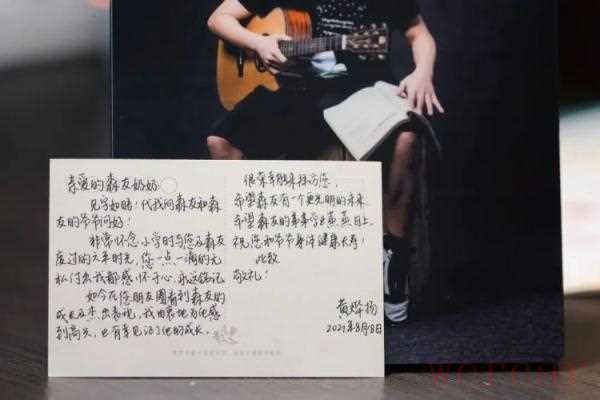 亲爱的森友奶奶
见字如晤！代我问森友和森
友的爷爷问好！
非常怀念小学时与您及森友
度过的六年时光，您一点一滴的无
私付出我都感怀于心，永远铭记
如今在您朋友圈看到森友的
成长及杰出表现，我由衷地为他感
到高兴，也有幸见证了他的成长。
很荣幸
您，
希望森友有一个更光明的未来
希望森友的事事业蒸蒸日上
祝您和爷爷身体健康长寿！
此致
敬礼！
黄烨扬
2021年8月18日